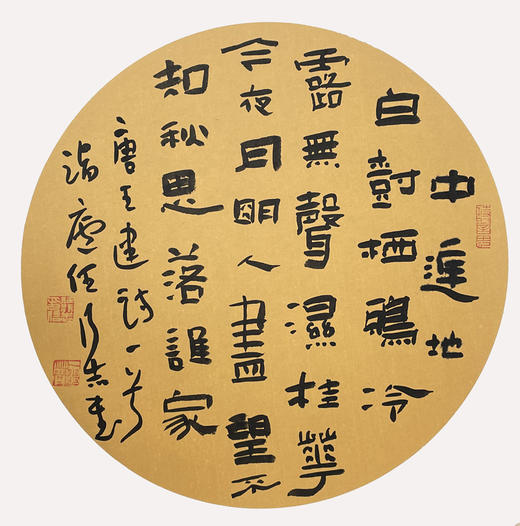 中庭地
白樹栖鴉冷
露無聲濕桂華
今夜月明人盡望不
知秋思落誰家
唐王建詩一首
廬任志書